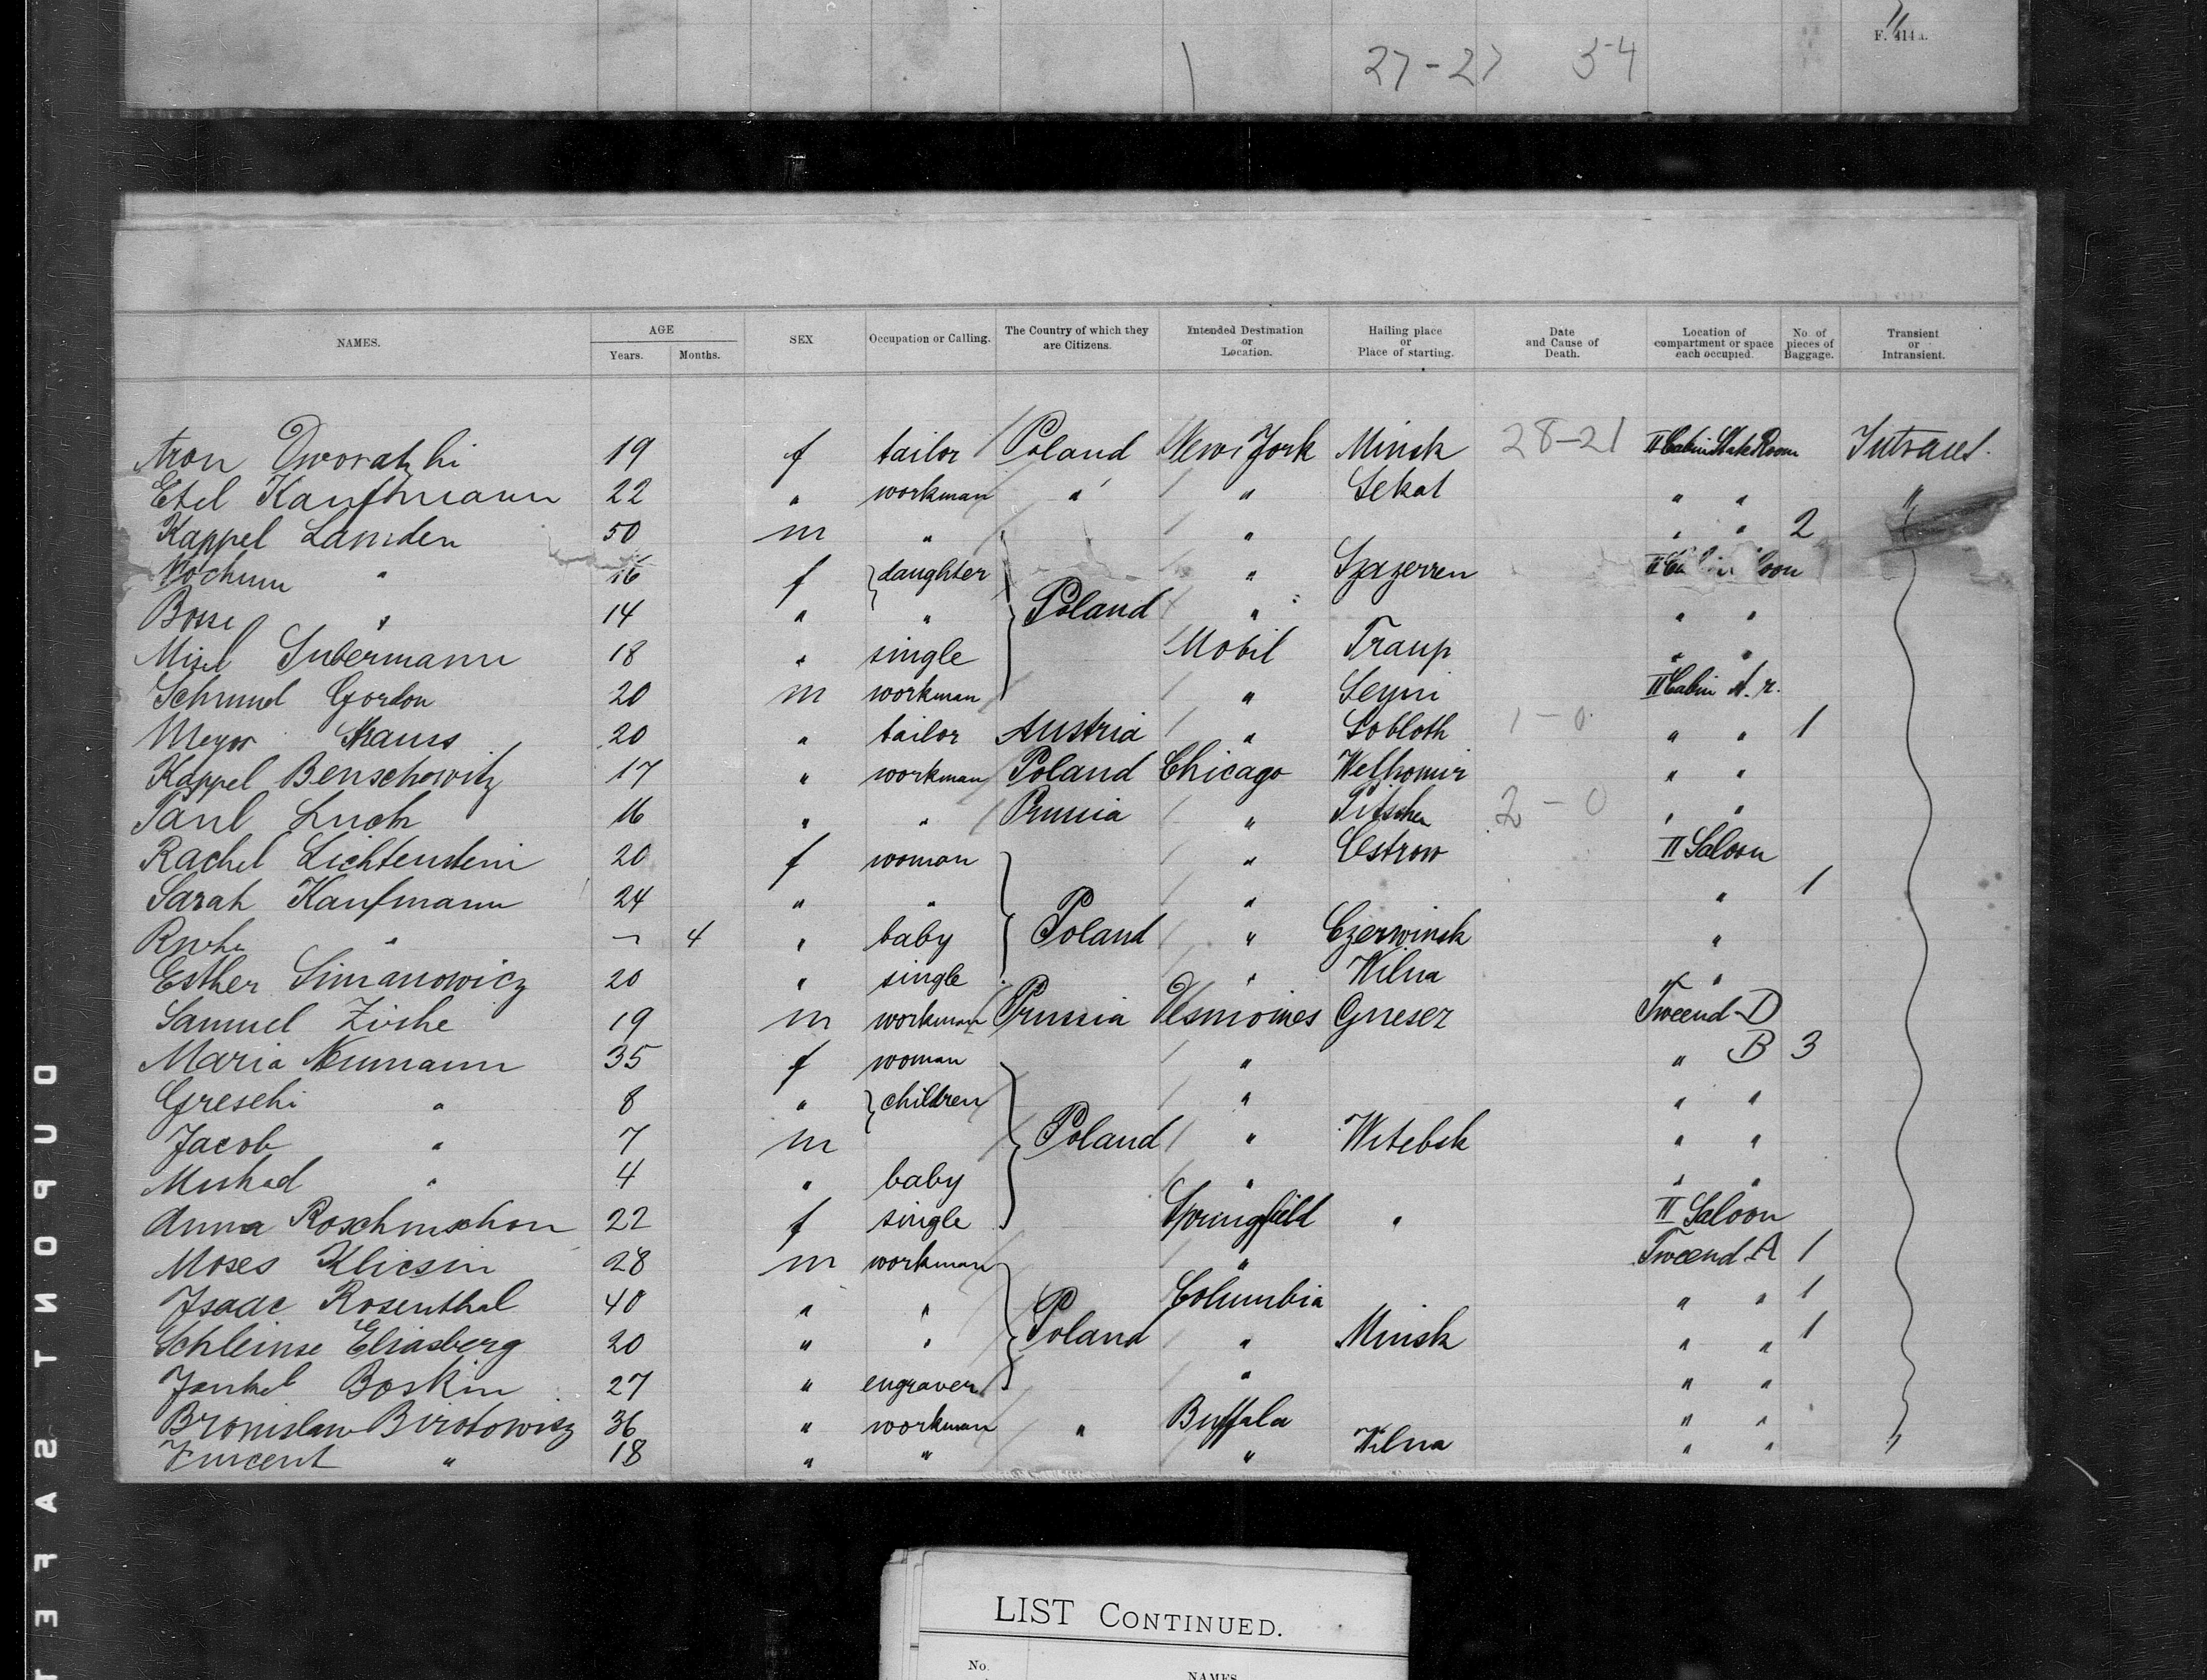 F. 414a.
27-27 54
NAMES. AGE Years. Months. SEX Occupation or Calling. The Country of which they are Citizens. Intended Destination or Location. Hailing place or Place of starting. Date and Cause of Death. Location of compartment or space each occupied. No. of pieces of Baggage. Transient or Intransient.
Aron Dworatzki 19 f tailor Poland New York Minsk 28-21 II Cabin State Room
Etel Kaufmann 22 " workman " " Sekat " "
Kappel Lamden 50 m " " " " 2
" 16 f daughter " II
Bosse " 14 " " Poland " " "
Misel Subermann 18 " single Mobil Traup " "
Schmul Gordon 20 m workman " II Cabin
Meyer Strauss 20 " tailor Austria " Sobloth 1-0 " " 1
Kappel Benschowitz 17 " workman Poland Chicago " "
Paul 16 " " Prussia " Pitschen 2-0 " "
Rachel Lichtenstein 20 f woman " Ostrow II Saloon
Sarah Kaufmann 24 " " " " 1
" 4 " baby Poland " Czerwinsk "
Esther Simanowicz 20 " single " Wilna "
Samuel Zirke 19 m workman Prussia Desmoines Gnesez Tweend D
Maria Neumann 35 f woman " " B 3
Greschi " 8 " children " " "
Jacob " 7 m Poland " Witebsk " "
" 4 " baby " " "
Anna Roschinschon 22 f single Springfield " II Saloon
Moses Kliesin 28 m workman " Tweend A 1
Isaac Rosenthal 40 " " Columbia " " 1
Schleinse Eliasberg 20 " " Poland " Minsk " " 1
Jankel Boskin 27 " engraver " " "
Bronislaw Birotowisz 36 " workman " Buffala " "
Vincent " 18 " " " Wilna " "
LIST CONTINUED.
No. NAMES